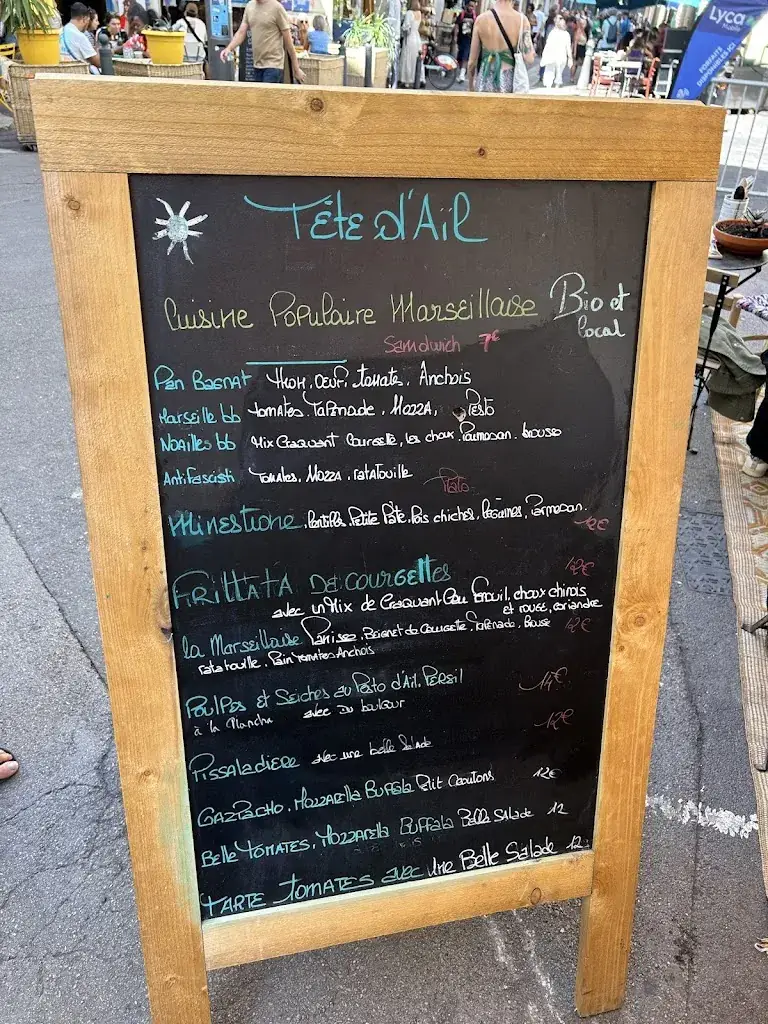 Lyca
Mobile
FORFAITS
DISPONIBLES ICI
Tête d'Aïl
Cuisine Populaire Marseillaise Bio et local
Samdwich 7€
Pan Bagnat Thon, Oeuf, tomate, Anchois
Marseille bb tomates Tapenade, Mozza, Pesto
Noailles bb Mix Craquant Courgette, les choux, Parmesan, brousse
Antifascisti Tomates, Mozza, ratatouille
Plats
Minestrone, Lentilles, Petite Pâte, Pois chiches, Légumes, Parmesan. 12€
FRittatA De courgettes 12€
avec un Mix de Craquant Cou Frouil, choux chinois
et rouge, coriandre
la Marseillaise Panisse, Beignet de Courgette, Tapenade, Brouse 12€
ratatouille, Pain tomates Anchois
Poulpes et Seiches au Pesto d'Ail, Persil 14€
à la Plancha avec Du boulgour
Pissaladiere avec une belle Salade 12€
GAZPACHO, Mozzarella Buffala Petit Croutons 12€
Belle TOMATES, Mozzarella Buffala Belle Salade 12
TARTE tomates avec Une Belle Salade 12